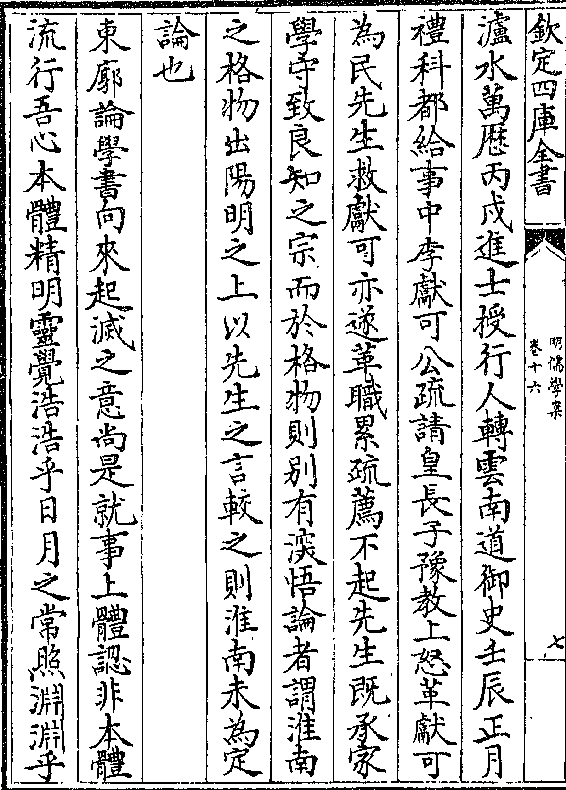 欽定四庫全書
明儒學案
卷十六
七
瀘水萬厯丙戌進士授行人轉雲南道御史壬辰正月
禮科都給事中李獻可公疏請皇長子豫教上怒革獻可
為民先生救獻可亦遂革職累疏薦不起先生既承家
學守致良知之宗而於格物則别有深悟論者謂淮南
之格物出陽明之上以先生之言較之則淮南未為定
論也
東廓論學書向來起滅之意尚是就事上體認非本體
流行吾心本體精明靈覺浩浩乎日月之常照淵淵乎